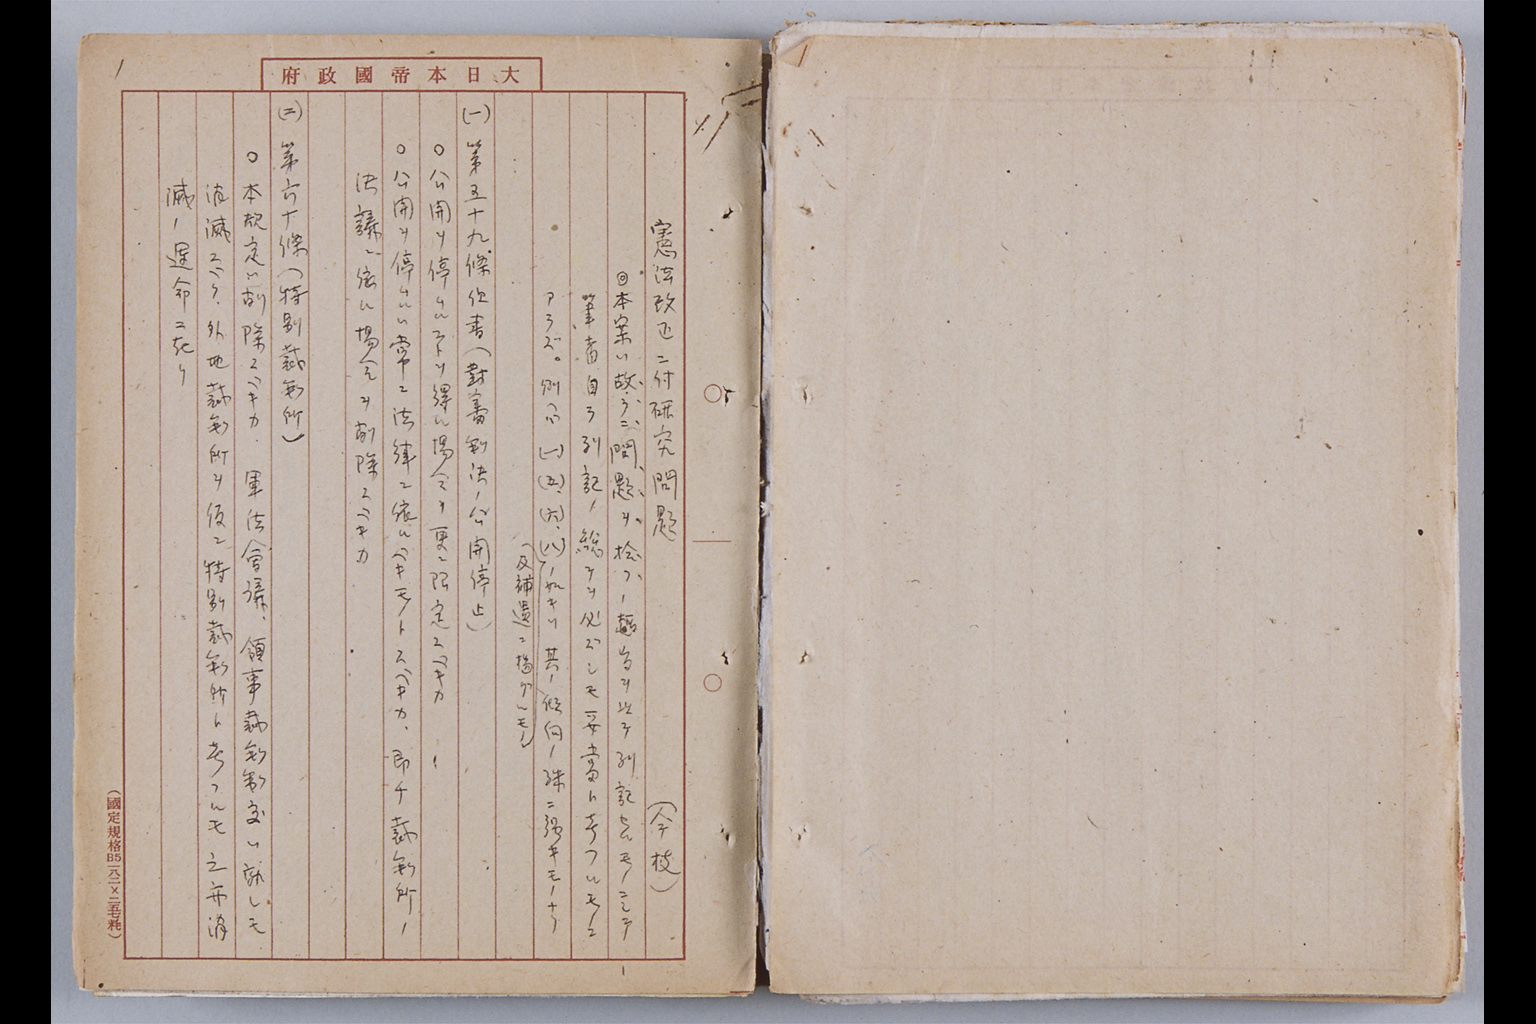 大日本帝國政府
憲法改正ニ付研究問題
(今枝)
◎本案ハ故ラニ問題ヲ拾フノ趣旨ヲ以テ列記セルモノニシテ
筆者自ラ列記ノ總テヲ必ズシモ妥當ト考フルモノニ
アラズ。別シテ(一)(五)、(六)、(八)ノ如キハ其ノ傾向ノ殊ニ強キモノナリ
(及補遺ニ揭グルモノ)
(一)第五十九條但書(對審判決ノ公開停止)
○公開ヲ停ムルコトヲ得ル場合ヲ更ニ限定スベキカ
○公開ヲ停ムルハ常ニ法律ニ依ルベキモノトスベキカ、即チ裁判所ノ
決議ニ依ル場合ヲ削除スベキカ
(二)第六十條(特別裁判所)
○本規定ハ削除スベキカ、軍法會議、領事裁判制度ハ孰レモ
消滅スベク、外地裁判所ヲ假ニ特別裁判所ト考フルモ之亦消
滅ノ運命ニ在リ
(國定規格B5 一八二×二五七粍)